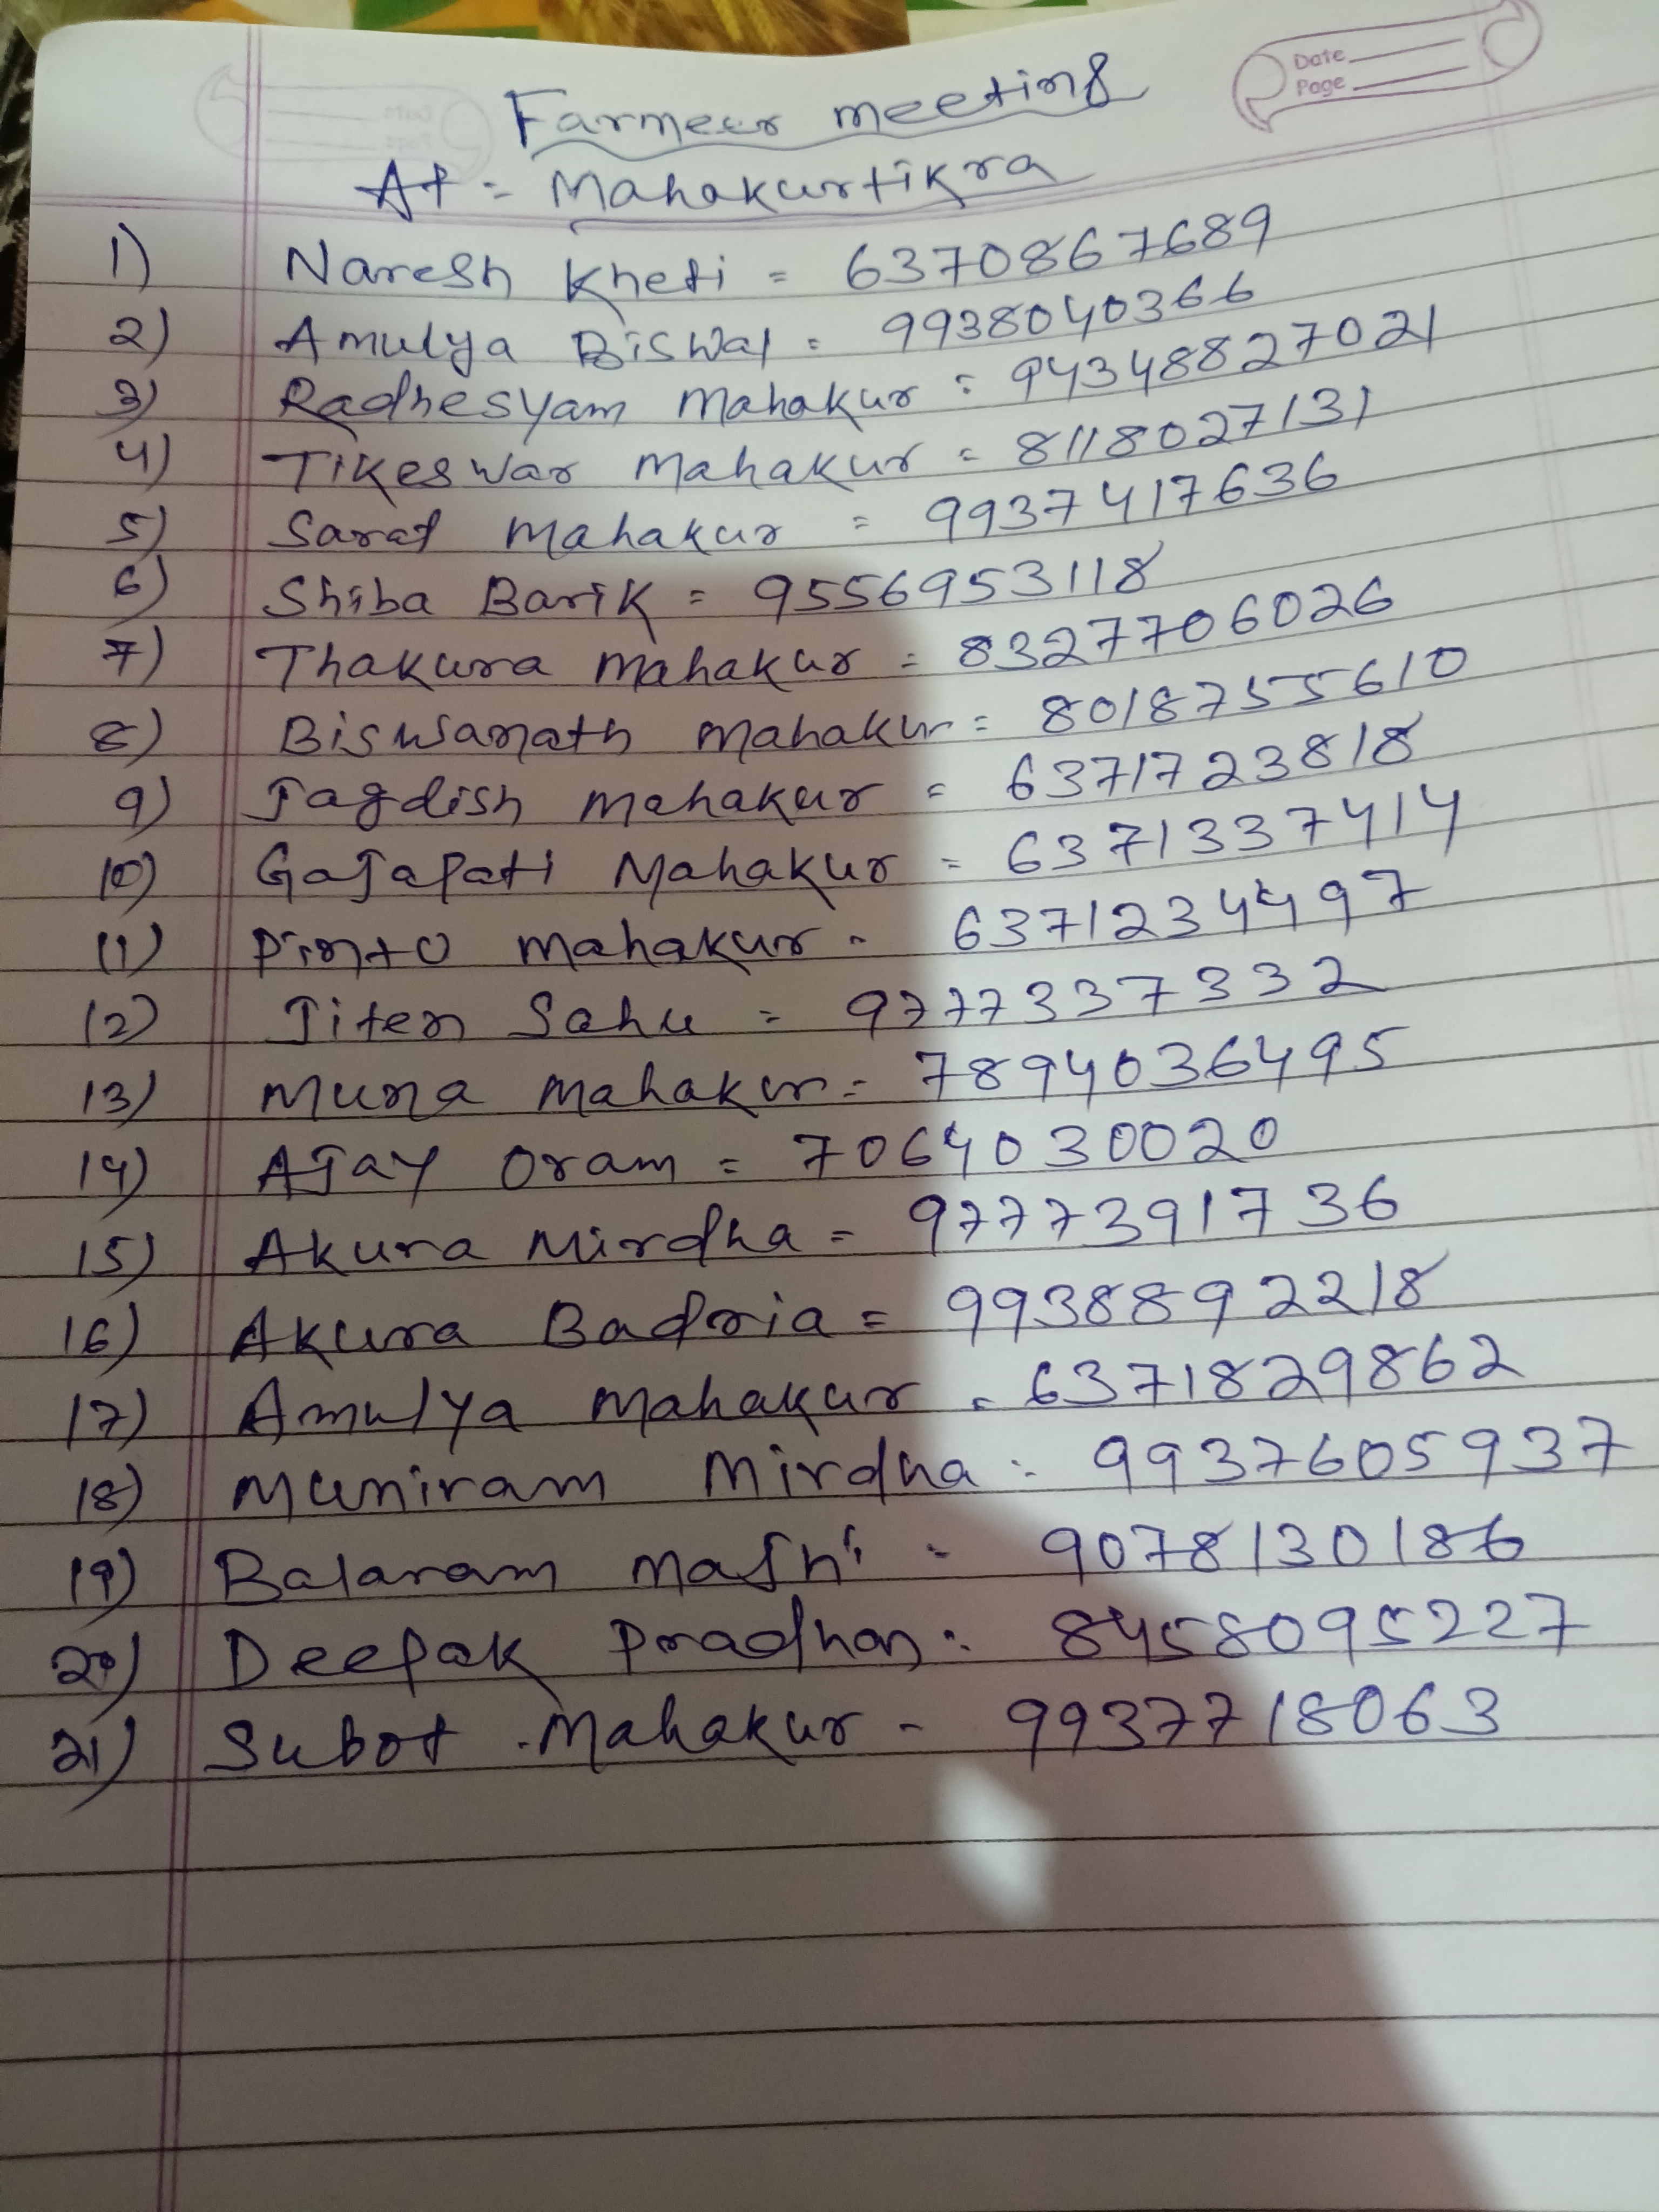 Date
Page
Farmeer meeting
At = Mahakurtikra
1) Naresh Kheti = 6370867689
2) Amulya Biswal = 9938040366
3) Radhesyam Mahakur = 94348827021
4) Tikeswar Mahakur = 8118027131
5) Sarat Mahakur = 9937417636
6) Shiba Barik = 9556953118
7) Thakura Mahakur = 8327706026
8) Biswanath Mahakur = 8018755610
9) Jagdish Mahakur = 6371723818
10) Gajapati Mahakur = 6371337414
11) Pinto Mahakur = 6371234497
12) Jiten Sahu = 9777337332
13) Muna Mahakur = 7894036495
14) Ajay Oram = 7064030020
15) Akura Mirdha = 9777391736
16) Akura Badria = 9938892218
17) Amulya Mahakur = 6371829862
18) Muniram Mirdha = 9937605937
19) Balaram Majhi = 9078130186
20) Deepak Pradhan = 8458095227
21) Subot Mahakur - 9937718063